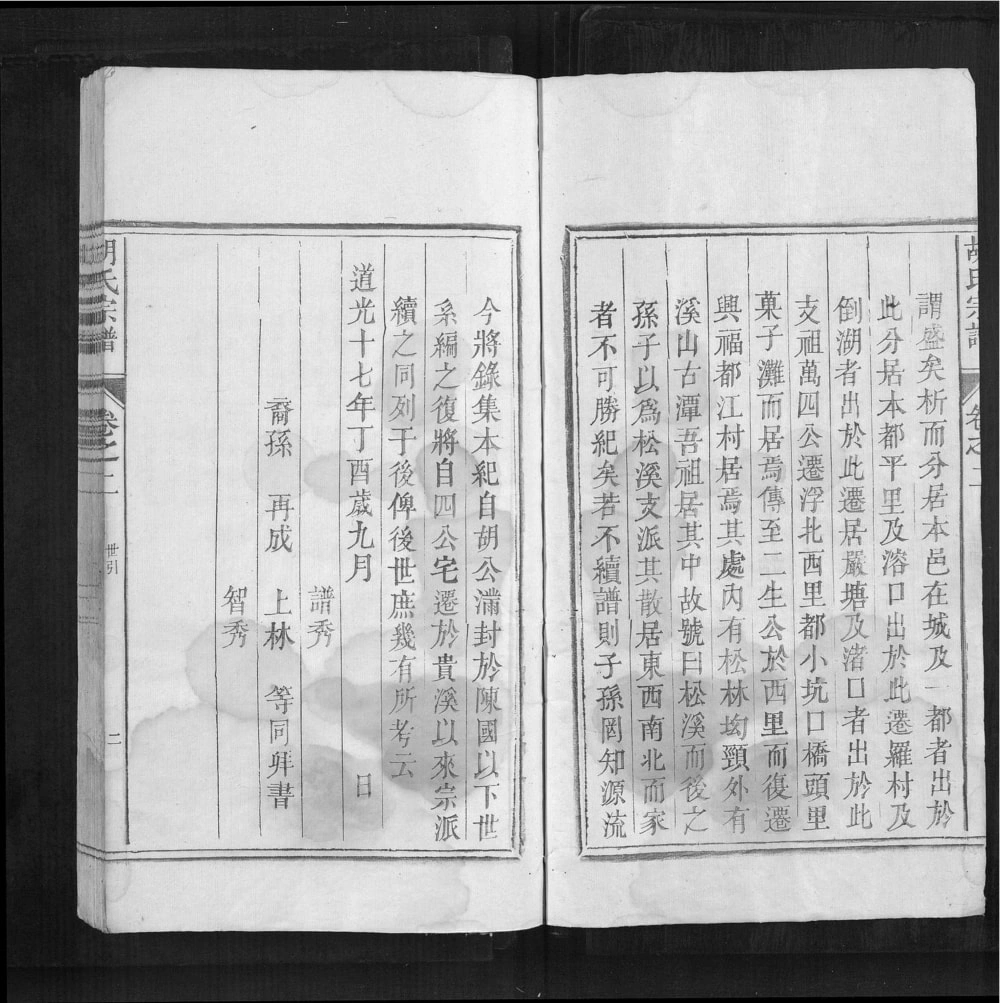 謂盛矣析而分居本邑在城及一都者出於
此分居本都平里及溶口出於此遷羅村及
倒湖者出於此遷居嚴塘及渚口者出於此
支祖萬四公遷浮北西里都小坑口橋頭里
菓子灘而居焉傳至二生公於西里而復遷
興福都江村居焉其處內有松林坳頸外有
溪山古潭吾祖居其中故號曰松溪而後之
孫子以爲松溪支派其散居東西南北而家
者不可勝紀矣若不續譜則子孫罔知源流
今將錄集本紀自胡公滿封於陳國以下世
系編之復將自四公宅遷於貴溪以來宗派
續之同列于後俾後世庶幾有所考云
道光十七年丁酉歲九月 日
譜秀
裔孫 再成 上林 等同拜書
智秀
胡氏宗譜 卷之二 世引 二